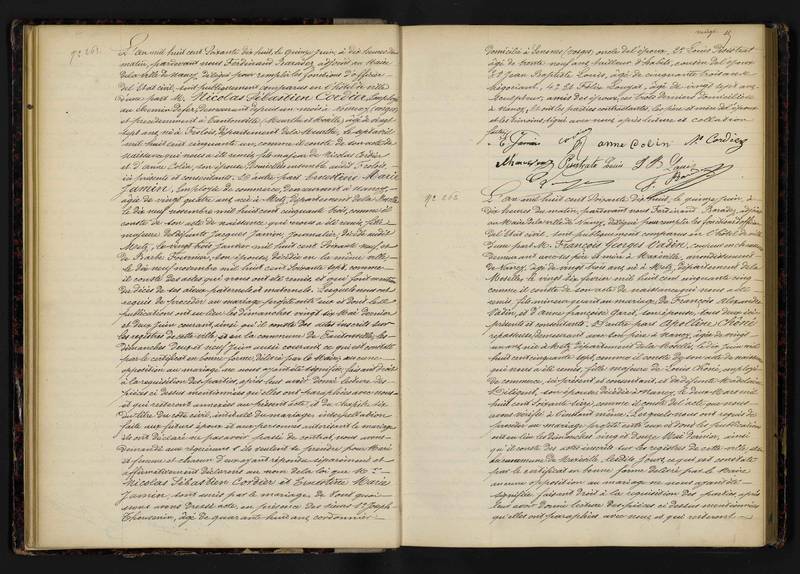 nº 261.
L'an mil huit cent soixante dix huit, le quinze juin, à dix heures du
matin, pardevant nous Ferdinand Baradez, adjoint au Maire
de la ville de Nancy, délégué pour remplir les fonctions d'officier
de l'Etat civil, sont publiquement comparus en l'hôtel de ville
d'une part M. Nicolas Sébastien Cordier, employé
au chemin de fer, demeurant
et précédemment à
sept ans, né à Frolois, département de la Meurthe, le sept avril
mil huit cent cinquante un, comme il conste de son acte de
naissance qui nous a été remis, fils majeur de Nicolas Cordier
et d'Anne Colin, son épouse, domiciliés ensemble audit Frolois,
ici présents et consentants. D'autre part Ernestine Marie
Jamin, employée de commerce, demeurant à Nancy,
âgée de vingt quatre ans, née à Metz, département de la Moselle
le dix neuf novembre mil huit cent cinquante trois, comme il
conste de son acte de naissance qui nous a été remis, fille
majeure de défunts Jacques Jamin, journalier, décédé audit
Metz, le vingt trois janvier mil huit cent soixante neuf, et
de Barbe Fournier, son épouse, décédée en la même ville,
le dix neuf novembre mil huit cent soixante sept, comme
il conste des actes qui nous ont été remis et qui font mention
du décès de ses aïeux paternels et maternels. Lesquels nous ont
requis de procéder au mariage projeté entre eux et dont les
publications ont eu lieu les dimanches vingt six Mai dernier
et deux juin courant, ainsi qu'il conste des actes inscrits sur
les registres de cette ville, et en la commune de
dimanches deux et neuf juin aussi courant, ce qui est constaté
par le certificat en bonne forme délivré par le Maire, aucune
opposition au mariage ne nous ayant été signifiée, faisant droit
à la réquisition des parties, après leur avoir donné lecture des
pièces ci dessus mentionnées qu'elles ont paraphées avec nous
et qui resteront annexées au présent acte, et du chapitre six
du titre du code civil, intitulé du mariage, interpellation
faite aux futurs époux et aux personnes autorisant le mariage
ils ont déclaré ne pas avoir passé de contrat, nous avons
demandé aux requérants s'ils veulent se prendre pour mari
et femme et chacun d'eux ayant répondu séparément et
affirmativement déclarons au nom de la loi que M.
Nicolas Sébastien Cordier et Ernestine Marie
Jamin sont unis par le mariage. De tout quoi
nous avons dressé acte, en présence des sieurs 1º Joseph
âgé de quarante huit ans, cordonnier
domicilié à Senones, (vosges), oncle de l'époux, 2º Louis
âgé de trente neuf ans, tailleur d'habits, cousin de l'époux
3º Jean Baptiste Louis, âgé de cinquante trois ans
négociant, 4º Félix
à Nancy, et ont les parties contractantes, les père et mère de l'époux
et les témoins signé avec nous après lecture et collation
faites.
E Jamin anne colin N. Cordier
Louis J B Louis
nº 262.
L'an mil huit cent soixante dix huit, le quinze juin, à
dix heures du matin, pardevant nous Ferdinand Baradez, adjoint
au Maire de la ville de Nancy, délégué pour remplir les fonctions d'officier
de l'Etat civil, sont publiquement comparus en l'hôtel de ville
d'une part M. François Georges
demeurant avec ses père et mère à Maxéville, arrondissement
de Nancy, âgé de vingt trois ans, né à Metz, département de la
Moselle, le vingt six février mil huit cent cinquante cinq
comme il conste de son acte de naissance qui nous a été
remis, fils mineur quant au mariage, de François Alexandre
et d'Anne françoise
présents et consentants. D'autre part Apolline Chône
repasseuse, demeurant avec son père à Nancy, âgée de vingt
un ans, née à Metz, département de la Moselle, le dix juin mil
huit cent cinquante sept, comme il conste de son acte de naissance
qui nous a été remis, fille majeure de Louis Chône, employé
de commerce, ici présent et consentant, et de défunte Madeleine
son épouse, décédée à Nancy, le deux Mai mil
huit cent soixante
vérifié à l'instant même. Lesquels nous ont requis de
procéder au mariage projeté entre eux et dont les publications
ont eu lieu les dimanches cinq et douze Mai dernier, ainsi
qu'il conste des actes inscrits sur les registres de cette ville, et en
la commune de Maxéville, lesdits jours, ce qui est constaté
par le certificat en bonne forme délivré par le Maire
aucune opposition au mariage ne nous ayant été
signifiée, faisant droit à la réquisition des parties, après
leur avoir donné lecture des pièces ci dessus mentionnées
qu'elles ont paraphées avec nous et qui resteront